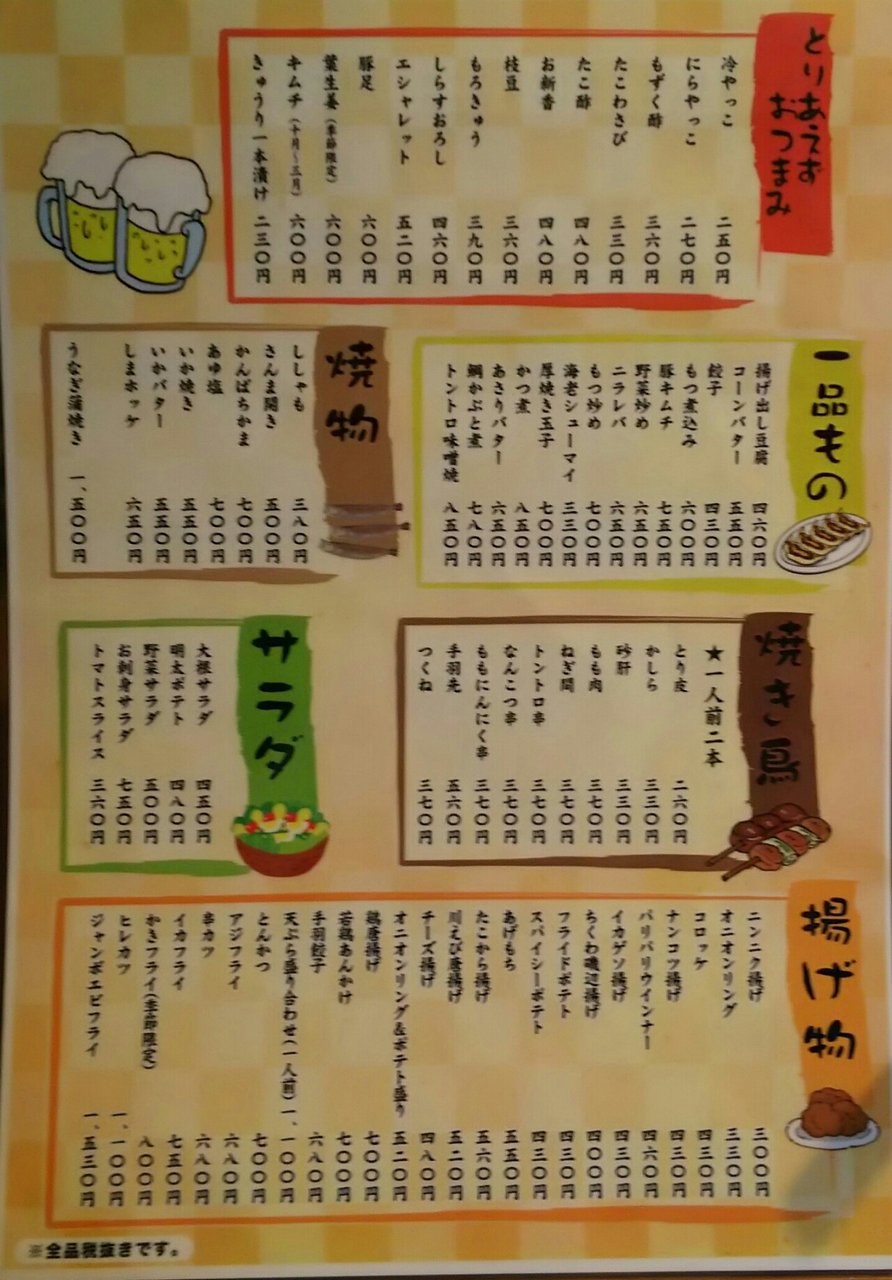 とりあえず
おつまみ
冷やっこ 二五〇円
にらやっこ 二七〇円
もずく酢 三六〇円
たこわさび 三三〇円
たこ酢 四八〇円
お新香 四八〇円
枝豆 三六〇円
もろきゅう 三九〇円
しらすおろし 四六〇円
エシャレット 五二〇円
豚足 六〇〇円
葉生姜(季節限定) 六〇〇円
キムチ(十月~三月) 六〇〇円
きゅうり一本漬け 二三〇円
一品もの
揚げ出し豆腐 四六〇円
コーンバター 五五〇円
餃子 四三〇円
もつ煮込み 六〇〇円
豚キムチ 七五〇円
野菜炒め 六五〇円
ニラレバ 六五〇円
もつ炒め 七〇〇円
海老シューマイ 三三〇円
厚焼き玉子 七〇〇円
かつ煮 八五〇円
あさりバター 六五〇円
鯛かぶと煮 七八〇円
トントロ味噌焼 八五〇円
焼物
ししゃも 三八〇円
さんま開き 五〇〇円
かんぱちかま 七〇〇円
あゆ塩 七〇〇円
いか焼き 五五〇円
いかバター 五五〇円
しまホッケ 六五〇円
うなぎ蒲焼き 一、五〇〇円
焼き鳥
★一人前二本
とり皮 二六〇円
かしら 三三〇円
砂肝 三三〇円
もも肉 三七〇円
ねぎ間 三七〇円
トントロ串 三七〇円
なんこつ串 三七〇円
ももにんにく串 三七〇円
手羽先 五六〇円
つくね 三七〇円
サラダ
大根サラダ 四五〇円
明太ポテト 四八〇円
野菜サラダ 五〇〇円
お刺身サラダ 七五〇円
トマトスライス 三六〇円
揚げ物
ニンニク揚げ 三〇〇円
オニオンリング 三三〇円
コロッケ 四三〇円
ナンコツ揚げ 四三〇円
パリパリウインナー 四六〇円
イカゲソ揚げ 四三〇円
ちくわ磯辺揚げ 四〇〇円
フライドポテト 四三〇円
スパイシーポテト 四三〇円
あげもち 五五〇円
たこから揚げ 五六〇円
川えび唐揚げ 五二〇円
チーズ揚げ 四八〇円
オニオンリング&ポテト盛り 五二〇円
鶏唐揚げ 七〇〇円
若鶏あんかけ 七〇〇円
手羽餃子 六八〇円
天ぷら盛り合わせ(一人前) 一、一〇〇円
とんかつ 七〇〇円
アジフライ 六八〇円
串カツ 六八〇円
イカフライ 七五〇円
かきフライ(季節限定) 八〇〇円
ヒレカツ 一、一〇〇円
ジャンボエビフライ 一、五三〇円
※全品税抜きです。